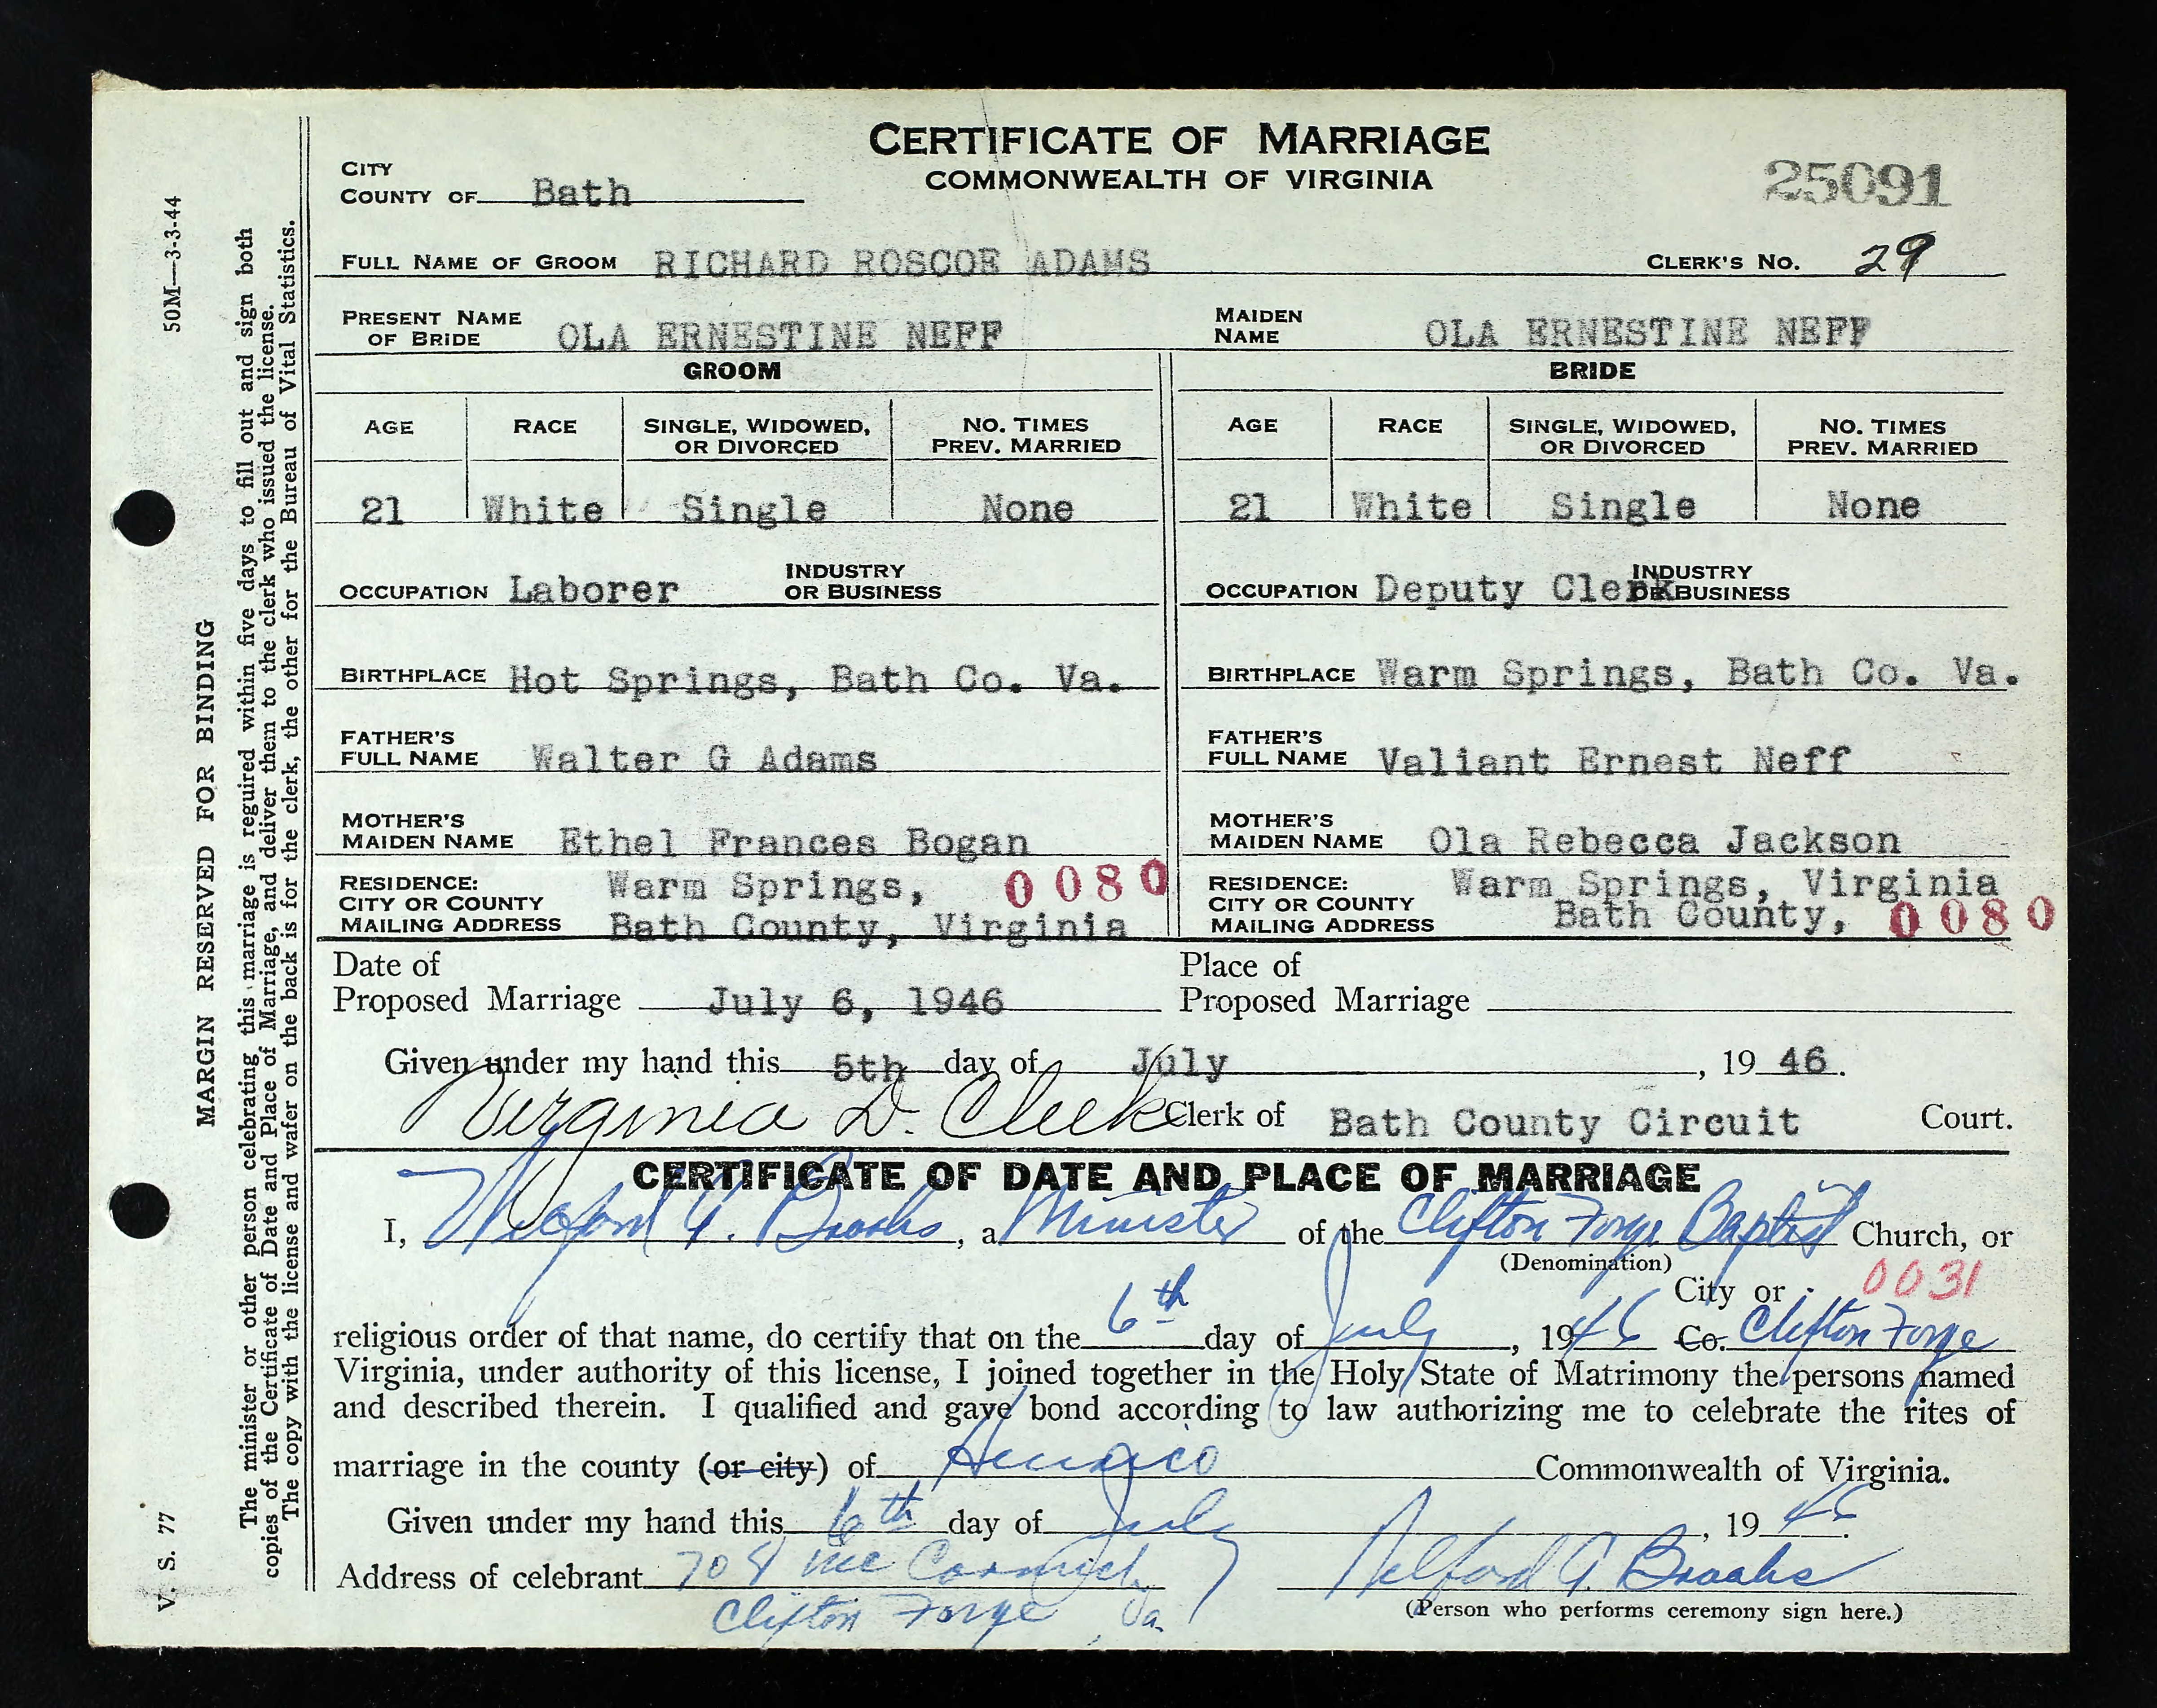 CERTIFICATE OF MARRIAGE
COMMONWEALTH OF VIRGINIA
25091
CITY
COUNTY OF Bath
FULL NAME OF GROOM RICHARD ROSCOE ADAMS CLERK'S NO. 29
PRESENT NAME OF BRIDE OLA ERNESTINE NEFF MAIDEN NAME OLA ERNESTINE NEFF
GROOM BRIDE
AGE RACE SINGLE, WIDOWED, OR DIVORCED NO. TIMES PREV. MARRIED AGE RACE SINGLE, WIDOWED, OR DIVORCED NO. TIMES PREV. MARRIED
21 White Single None 21 White Single None
OCCUPATION Laborer INDUSTRY OR BUSINESS OCCUPATION Deputy Clerk INDUSTRY OR BUSINESS
BIRTHPLACE Hot Springs, Bath Co. Va. BIRTHPLACE Warm Springs, Bath Co. Va.
FATHER'S FULL NAME Walter G Adams FATHER'S FULL NAME Valiant Ernest Neff
MOTHER'S MAIDEN NAME Ethel Frances Bogan MOTHER'S MAIDEN NAME Ola Rebecca Jackson
RESIDENCE: CITY OR COUNTY MAILING ADDRESS Warm Springs, 0080 Bath County, Virginia RESIDENCE: CITY OR COUNTY MAILING ADDRESS Warm Springs, Virginia Bath County, 0080
Date of Proposed Marriage July 6, 1946 Place of Proposed Marriage
Given under my hand this 5th day of July, 19 46.
Virginia D. Cleek Clerk of Bath County Circuit Court.
CERTIFICATE OF DATE AND PLACE OF MARRIAGE
I, Brooks, a Minister of the Clifton Forge Baptist Church, or
(Denomination)
City or 0031
religious order of that name, do certify that on the 6th day of July, 1946 Co. Clifton Forge
Virginia, under authority of this license, I joined together in the Holy State of Matrimony the persons named
and described therein. I qualified and gave bond according to law authorizing me to celebrate the rites of
marriage in the county (or city) of Henrico Commonwealth of Virginia.
Given under my hand this 6th day of July, 19 46.
Address of celebrant 708 McCormick Brooks
Clifton Forge, Va. (Person who performs ceremony sign here.)
50M—3-3-44
MARGIN RESERVED FOR BINDING
V. S. 77
The minister or other person celebrating this marriage is required within five days to fill out and sign both
copies of the Certificate of Date and Place of Marriage, and deliver them to the clerk who issued the license.
The copy with the license and wafer on the back is for the clerk, the other for the Bureau of Vital Statistics.